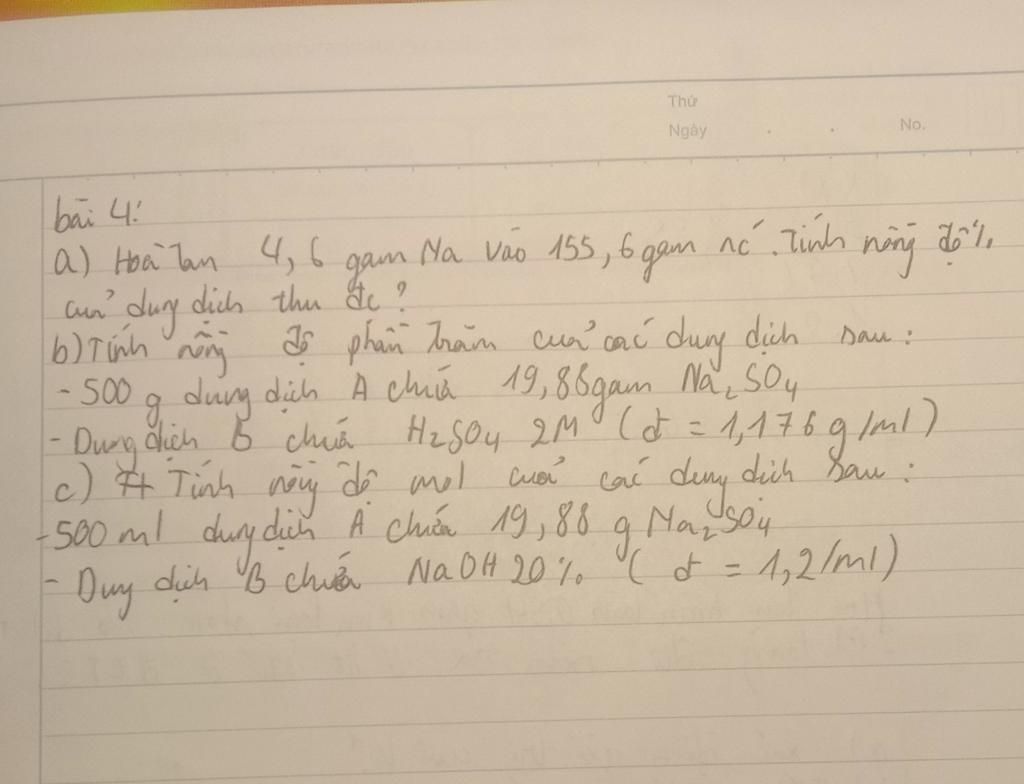 Thứ
Ngày . . No.
bài 4:
a) Hoà tan 4,6 gam Na vào 155,6 gam nć. Tính nồng độ %
của dung dịch thu đc?
b) Tính nồng độ phần trăm của các dung dịch sau:
- 500 g dung dịch A chứa 19,88 gam Na2SO4
- Dung dịch B chứa H2SO4 2M (d = 1,176 g/ml)
c) Tính nồng độ mol của các dung dịch sau:
- 500 ml dung dịch A chứa 19,88 g Na2SO4
- Duy dịch B chứa NaOH 20% (d = 1,2/ml)